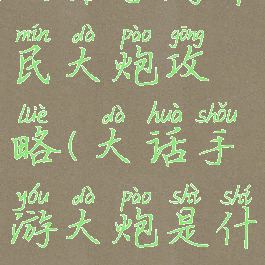 mín dà pào gōng
民大炮攻
lüè dà huà shǒu
略(大话手
yóu dà pào shì shí
游大炮是什